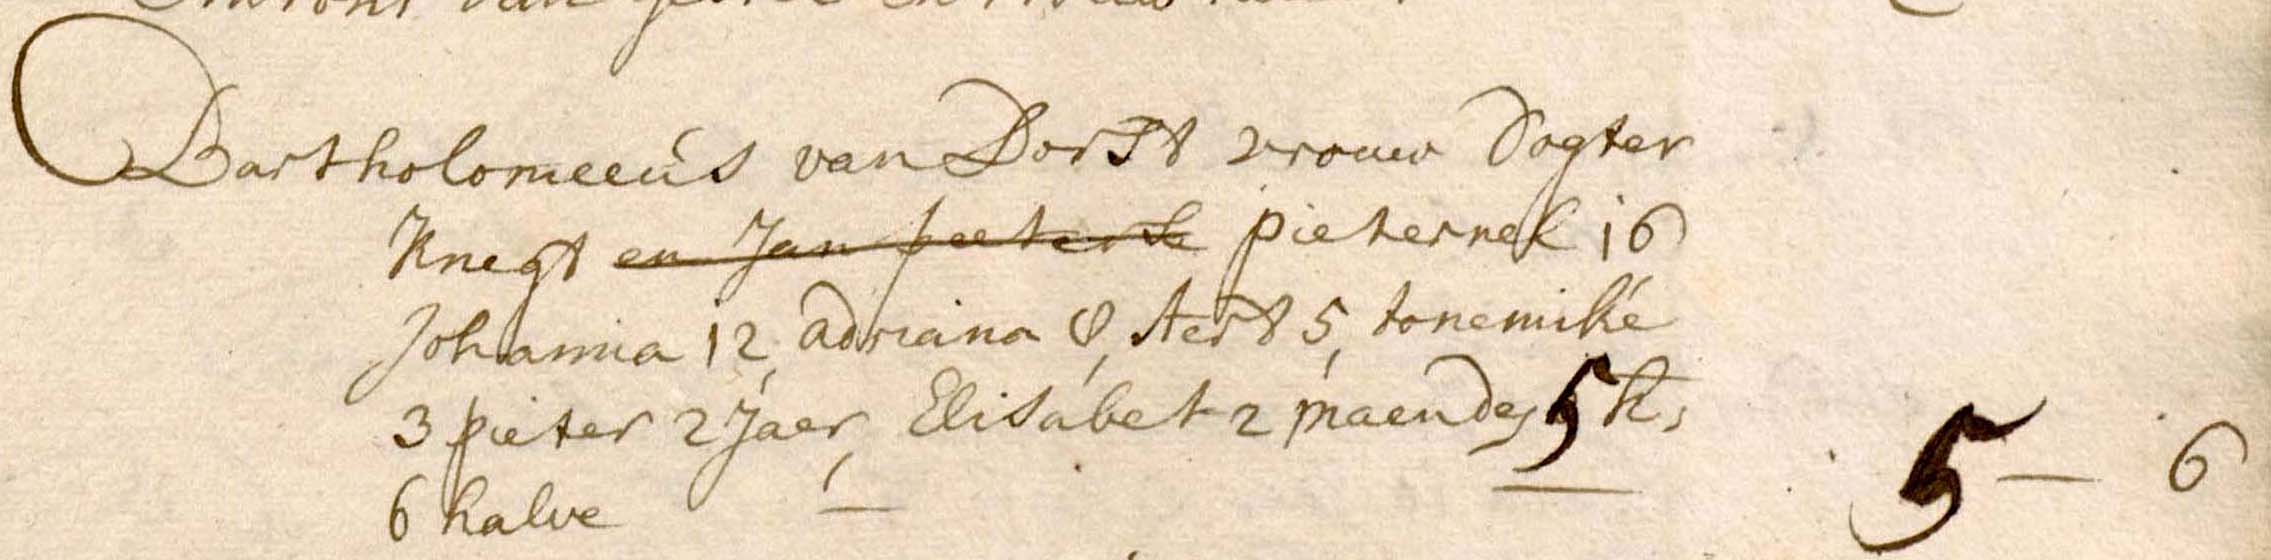 Bartholomeeus van Dorst vrouw Dogter
Knegt en Jan peeters pieternel 16
Johanna 12, adriana 8, Aert 5, tonemike
3 pieter 2 Jaer, Elisabet 2 maendes 5 K,
6 halve
5 — 6